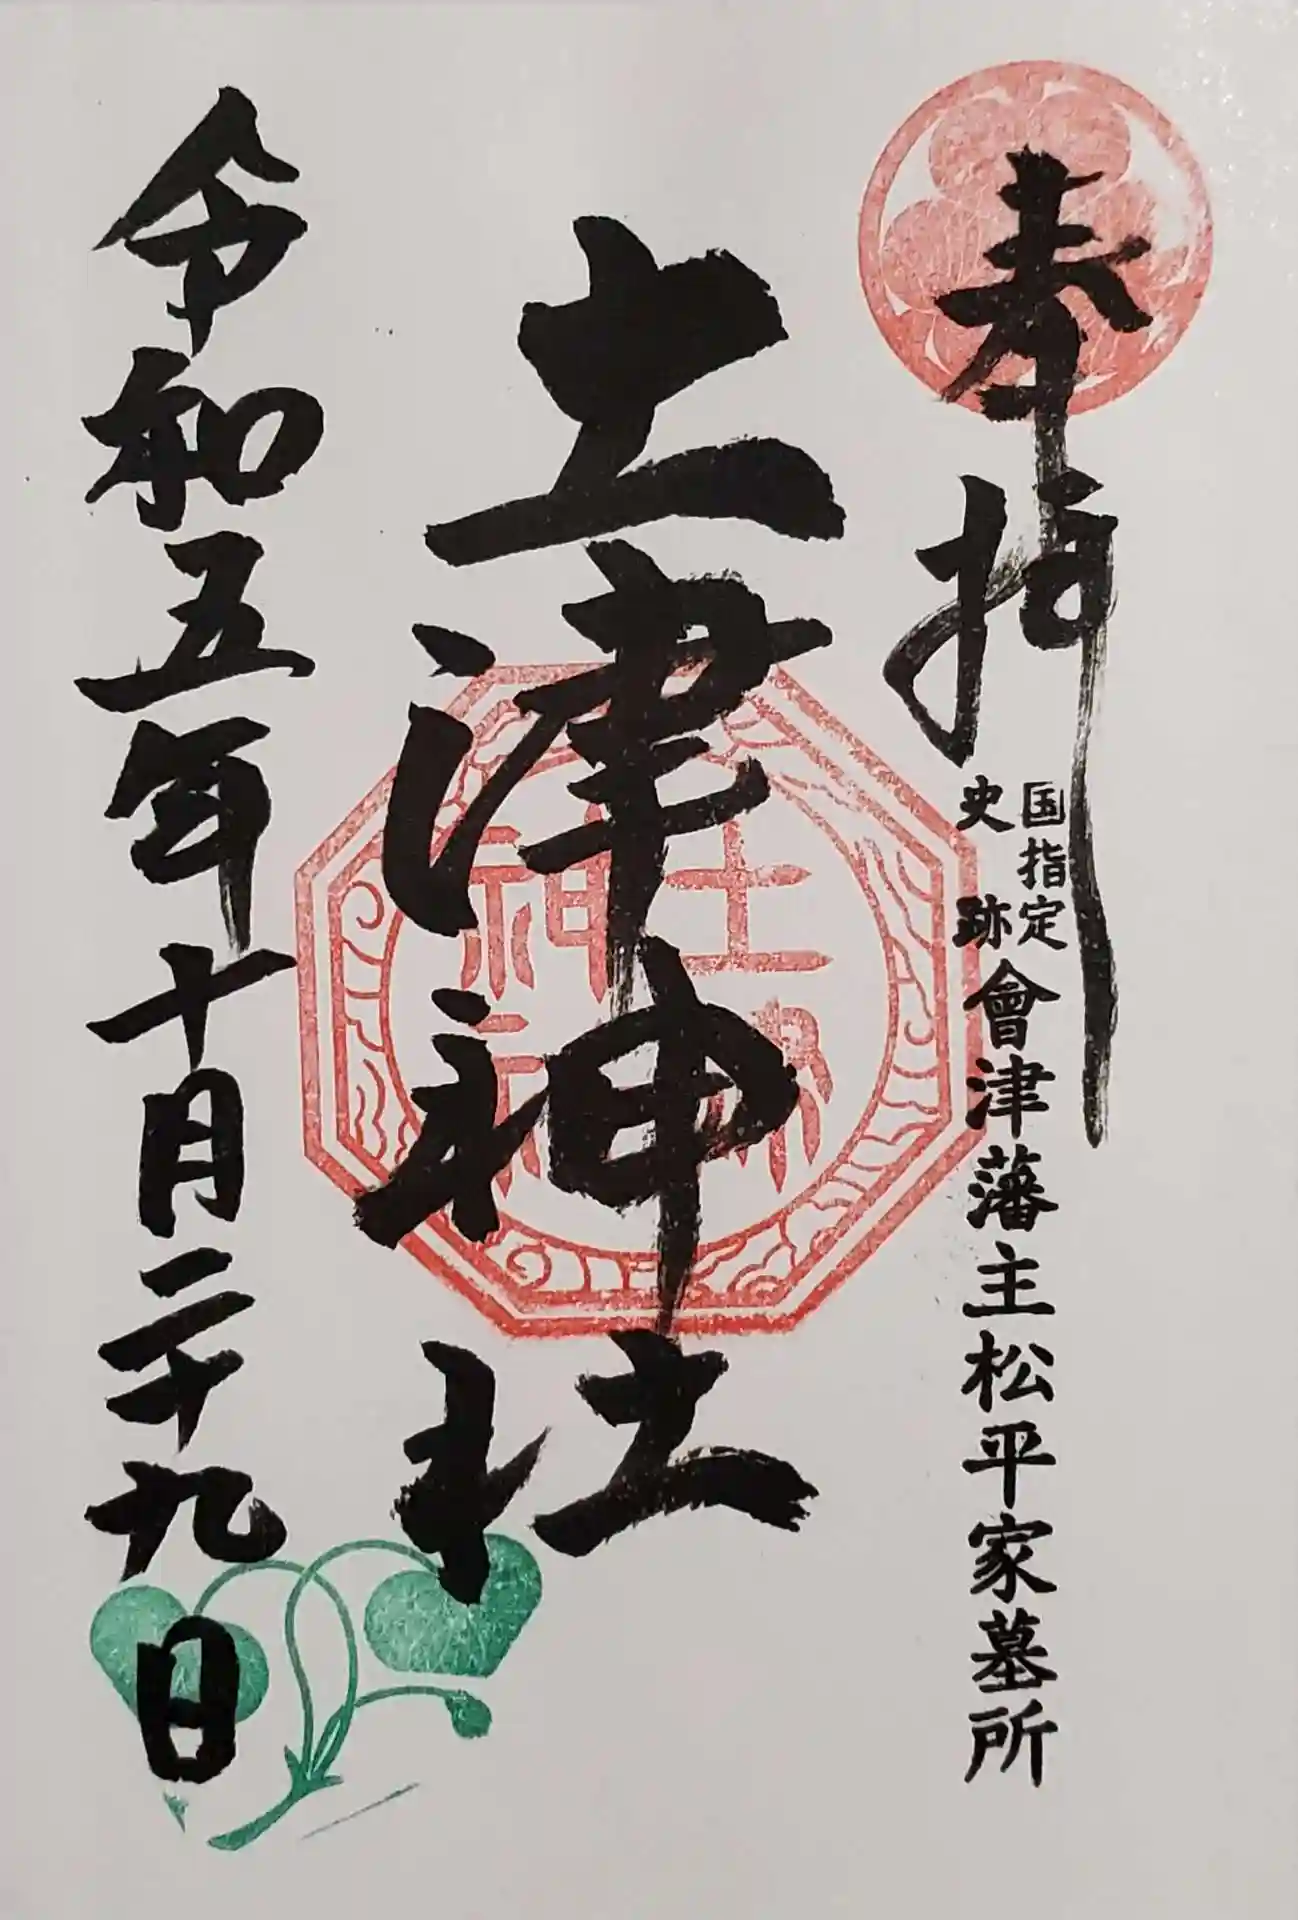 奉拝
国指定
史跡
會津藩主松平家墓所
土津神社
土津
神社
令和五年十月二十九日